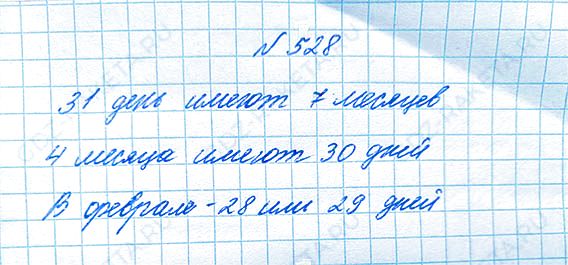 № 528
31 день имеют 7 месяцев
4 месяца имеют 30 дней
В феврале - 28 или 29 дней